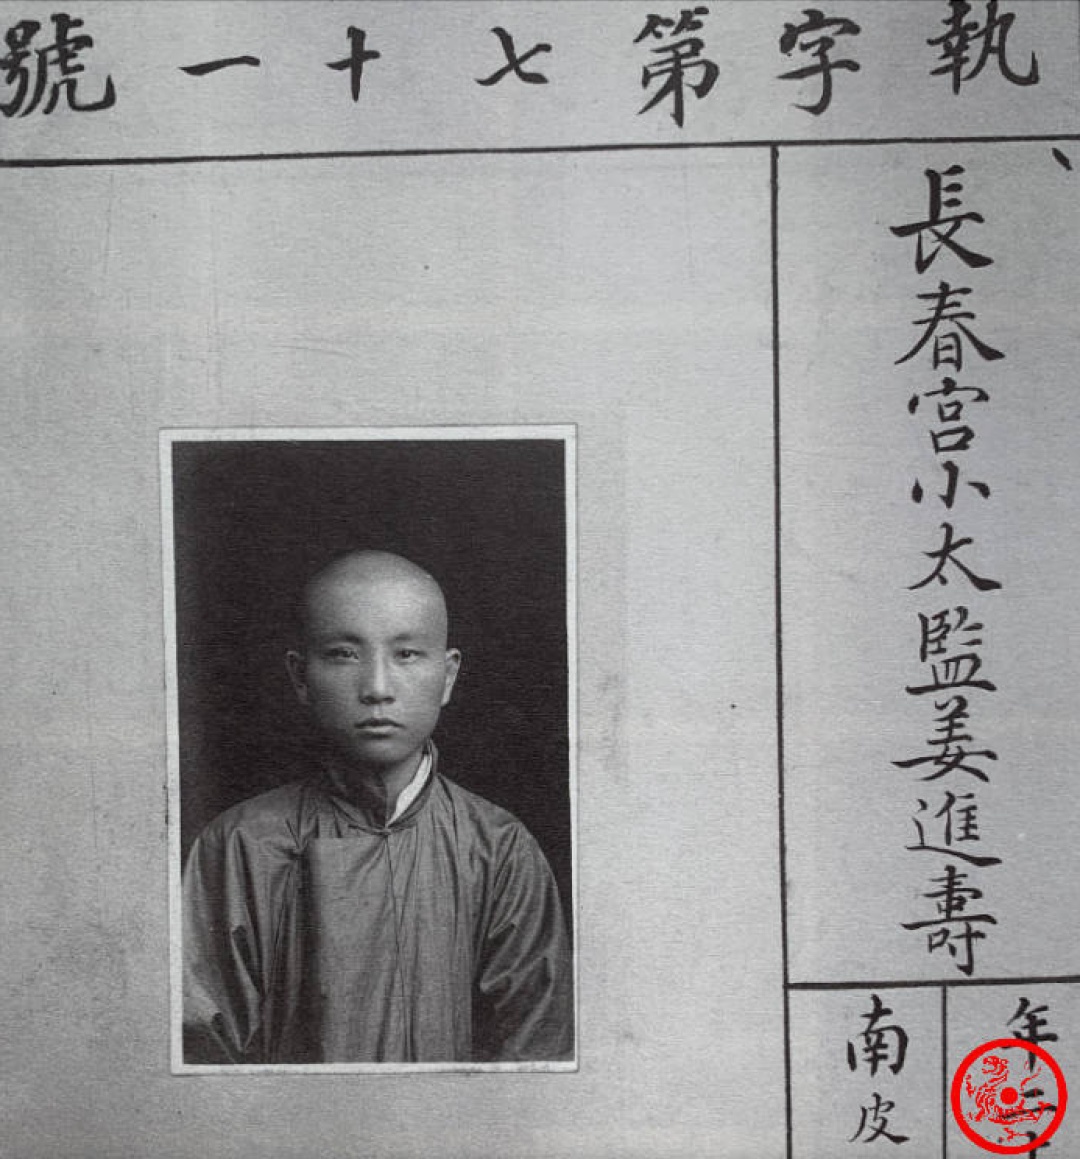 執字第七十一號
長春宮小太監姜進壽
年二十
南皮